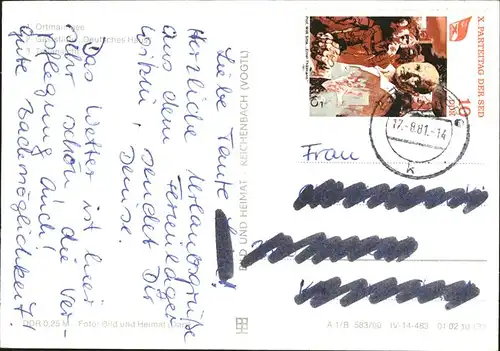 Ortmannsdorf
Deutsches Haus
Liebe Tante
Herzliche Urlaubsgrüße
aus dem Ferienlager
sendet Dir
Denise.
Das Wetter ist hier
sehr schön die Ver-
pflegung auch!
gute Backmöglichkeit!
DDR 0,25 M Foto: Bild und Heimat
BILD UND HEIMAT REICHENBACH (VOGTL)
X. PARTEITAG DER SED
10
DDR
17.-8.81.-14
k
Frau
A 1/B 583/80 IV-14-483 01 02 10